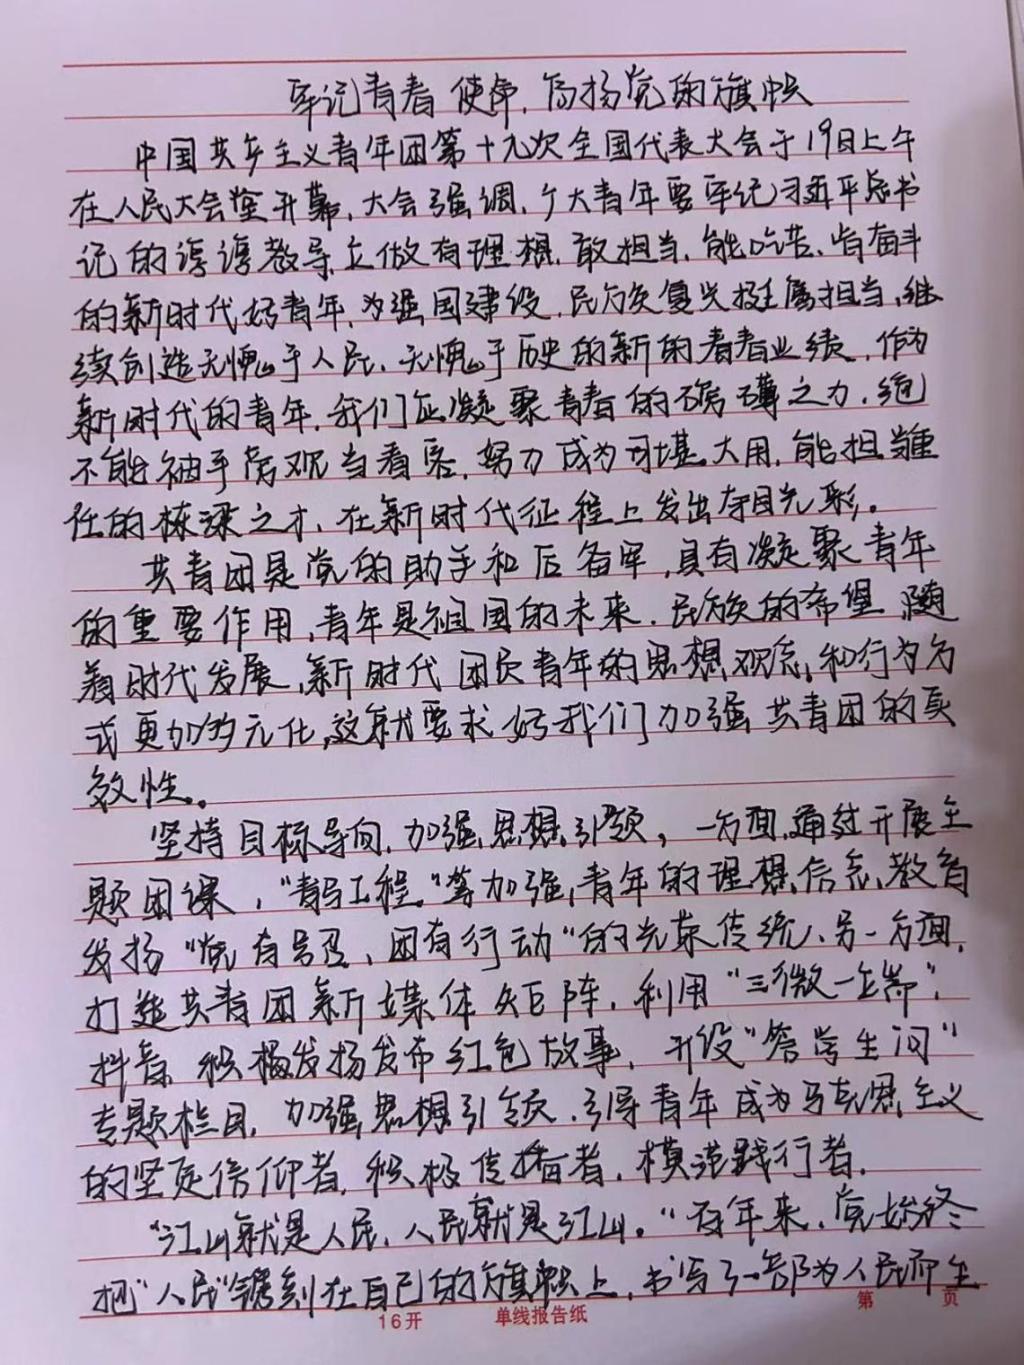 牢记青春使命,高扬党的旗帜
中国共产主义青年团第十九次全国代表大会于19日上午
在人民大会堂开幕,大会强调,广大青年要牢记习近平总书
记的谆谆教导,立做有理想、敢担当、能吃苦、肯奋斗
的新时代好青年,为强国建设、民族复兴挺膺担当,继
续创造无愧于人民、无愧于历史的新的青春业绩,作为
新时代的青年,我们应凝聚青春的磅礴之力,绝
不能袖手旁观当看客,努力成为可堪大用,能担当重
任的栋梁之才,在新时代征程上发出夺目光彩。
共青团是党的助手和后备军,具有凝聚青年
的重要作用,青年是祖国的未来,民族的希望,随
着时代发展,新时代团员青年的思想观念,和行为方
式更加多元化,这就要求好我们加强共青团的真
效性。
坚持目标导向,加强思想引领,一方面,通过开展主
题团课,“青马工程”等加强,青年的理想信念,教育
发扬“党有号召、团有行动”的光荣传统、另一方面,
打造共青团新媒体矩阵,利用“三微一端”,
抖音积极发扬发布红色故事,开设“答学生问”
专题栏目,加强思想引领,引导青年成为马克思主义
的坚定信仰者,积极传播者,模范践行者,
“江山就是人民,人民就是江山。”百年来,党始终
把“人民”镌刻在自己的旗帜上,书写了一部为人民而生
16开 单线报告纸 第 页